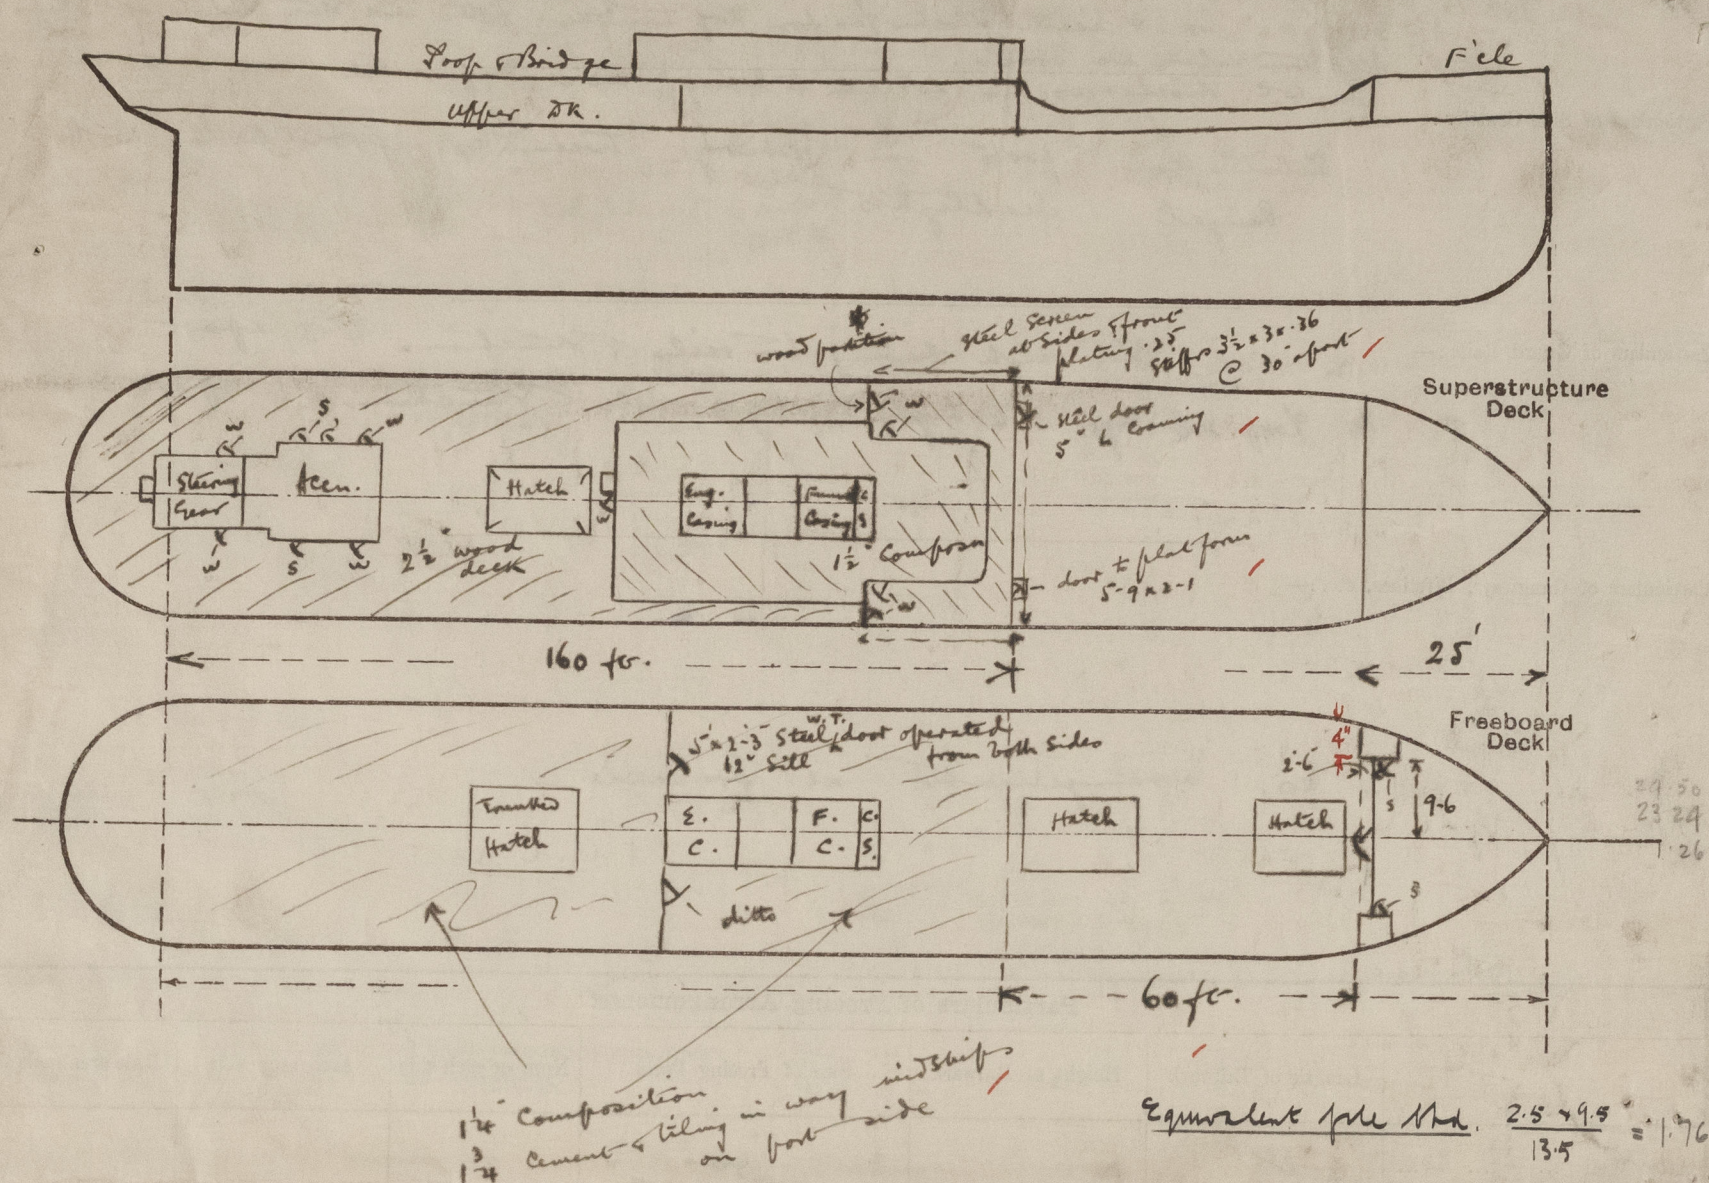 Poop & Bridge
F'cle
Upper DK.
wood partition
Steel Screen
at sides & front
plating .25
Stiffrs 3½ x 3 x .36
@ 30" apart
Superstructure
Deck
W
S
W
W
steel door
5" coaming
Steering
Gear
Accn.
Hatch
W
Eng.
Casing
Casing
C.
S
1½" Composn
W
S
W
2½" wood
deck
W
door to platform
5-9 x 2-1
160 ft.
25'
Freeboard
Deck
5' x 2'-3" Steel W.T. door operated
from both sides
12" Sill
4"
2-6
S
9-6
29.50
23 24
1.26
Trunked
Hatch
E.
C.
F.
C.
C.
S.
Hatch
Hatch
S
ditto
60 ft.
1¼" Composition
1¾ Cement & tiling in way midships
on port side
Equivalent fcle bhd. 2.5 x 9.5 = 1.76
13.5